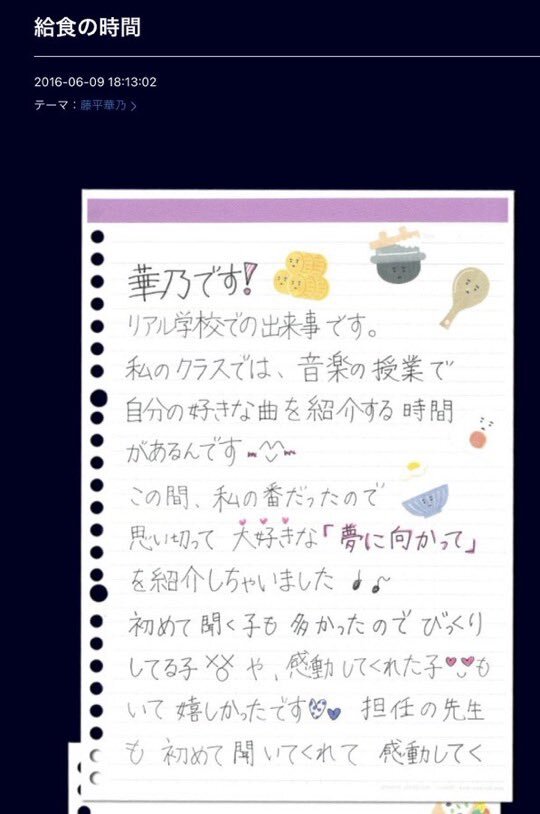 給食の時間
2016-06-09 18:13:02
テーマ：藤平華乃
華乃です!
リアル学校での出来事です。
私のクラスでは、音楽の授業で
自分の好きな曲を紹介する時間
があるんです
この間、私の番だったので
思い切って 大好きな「夢に向かって」
を紹介しちゃいました ♩♪
初めて聞く子も 多かったので びっくり
してる子 や、感動してくれた子 も
いて 嬉しかったです 担任の先生
も 初めて聞いてくれて 感動してく